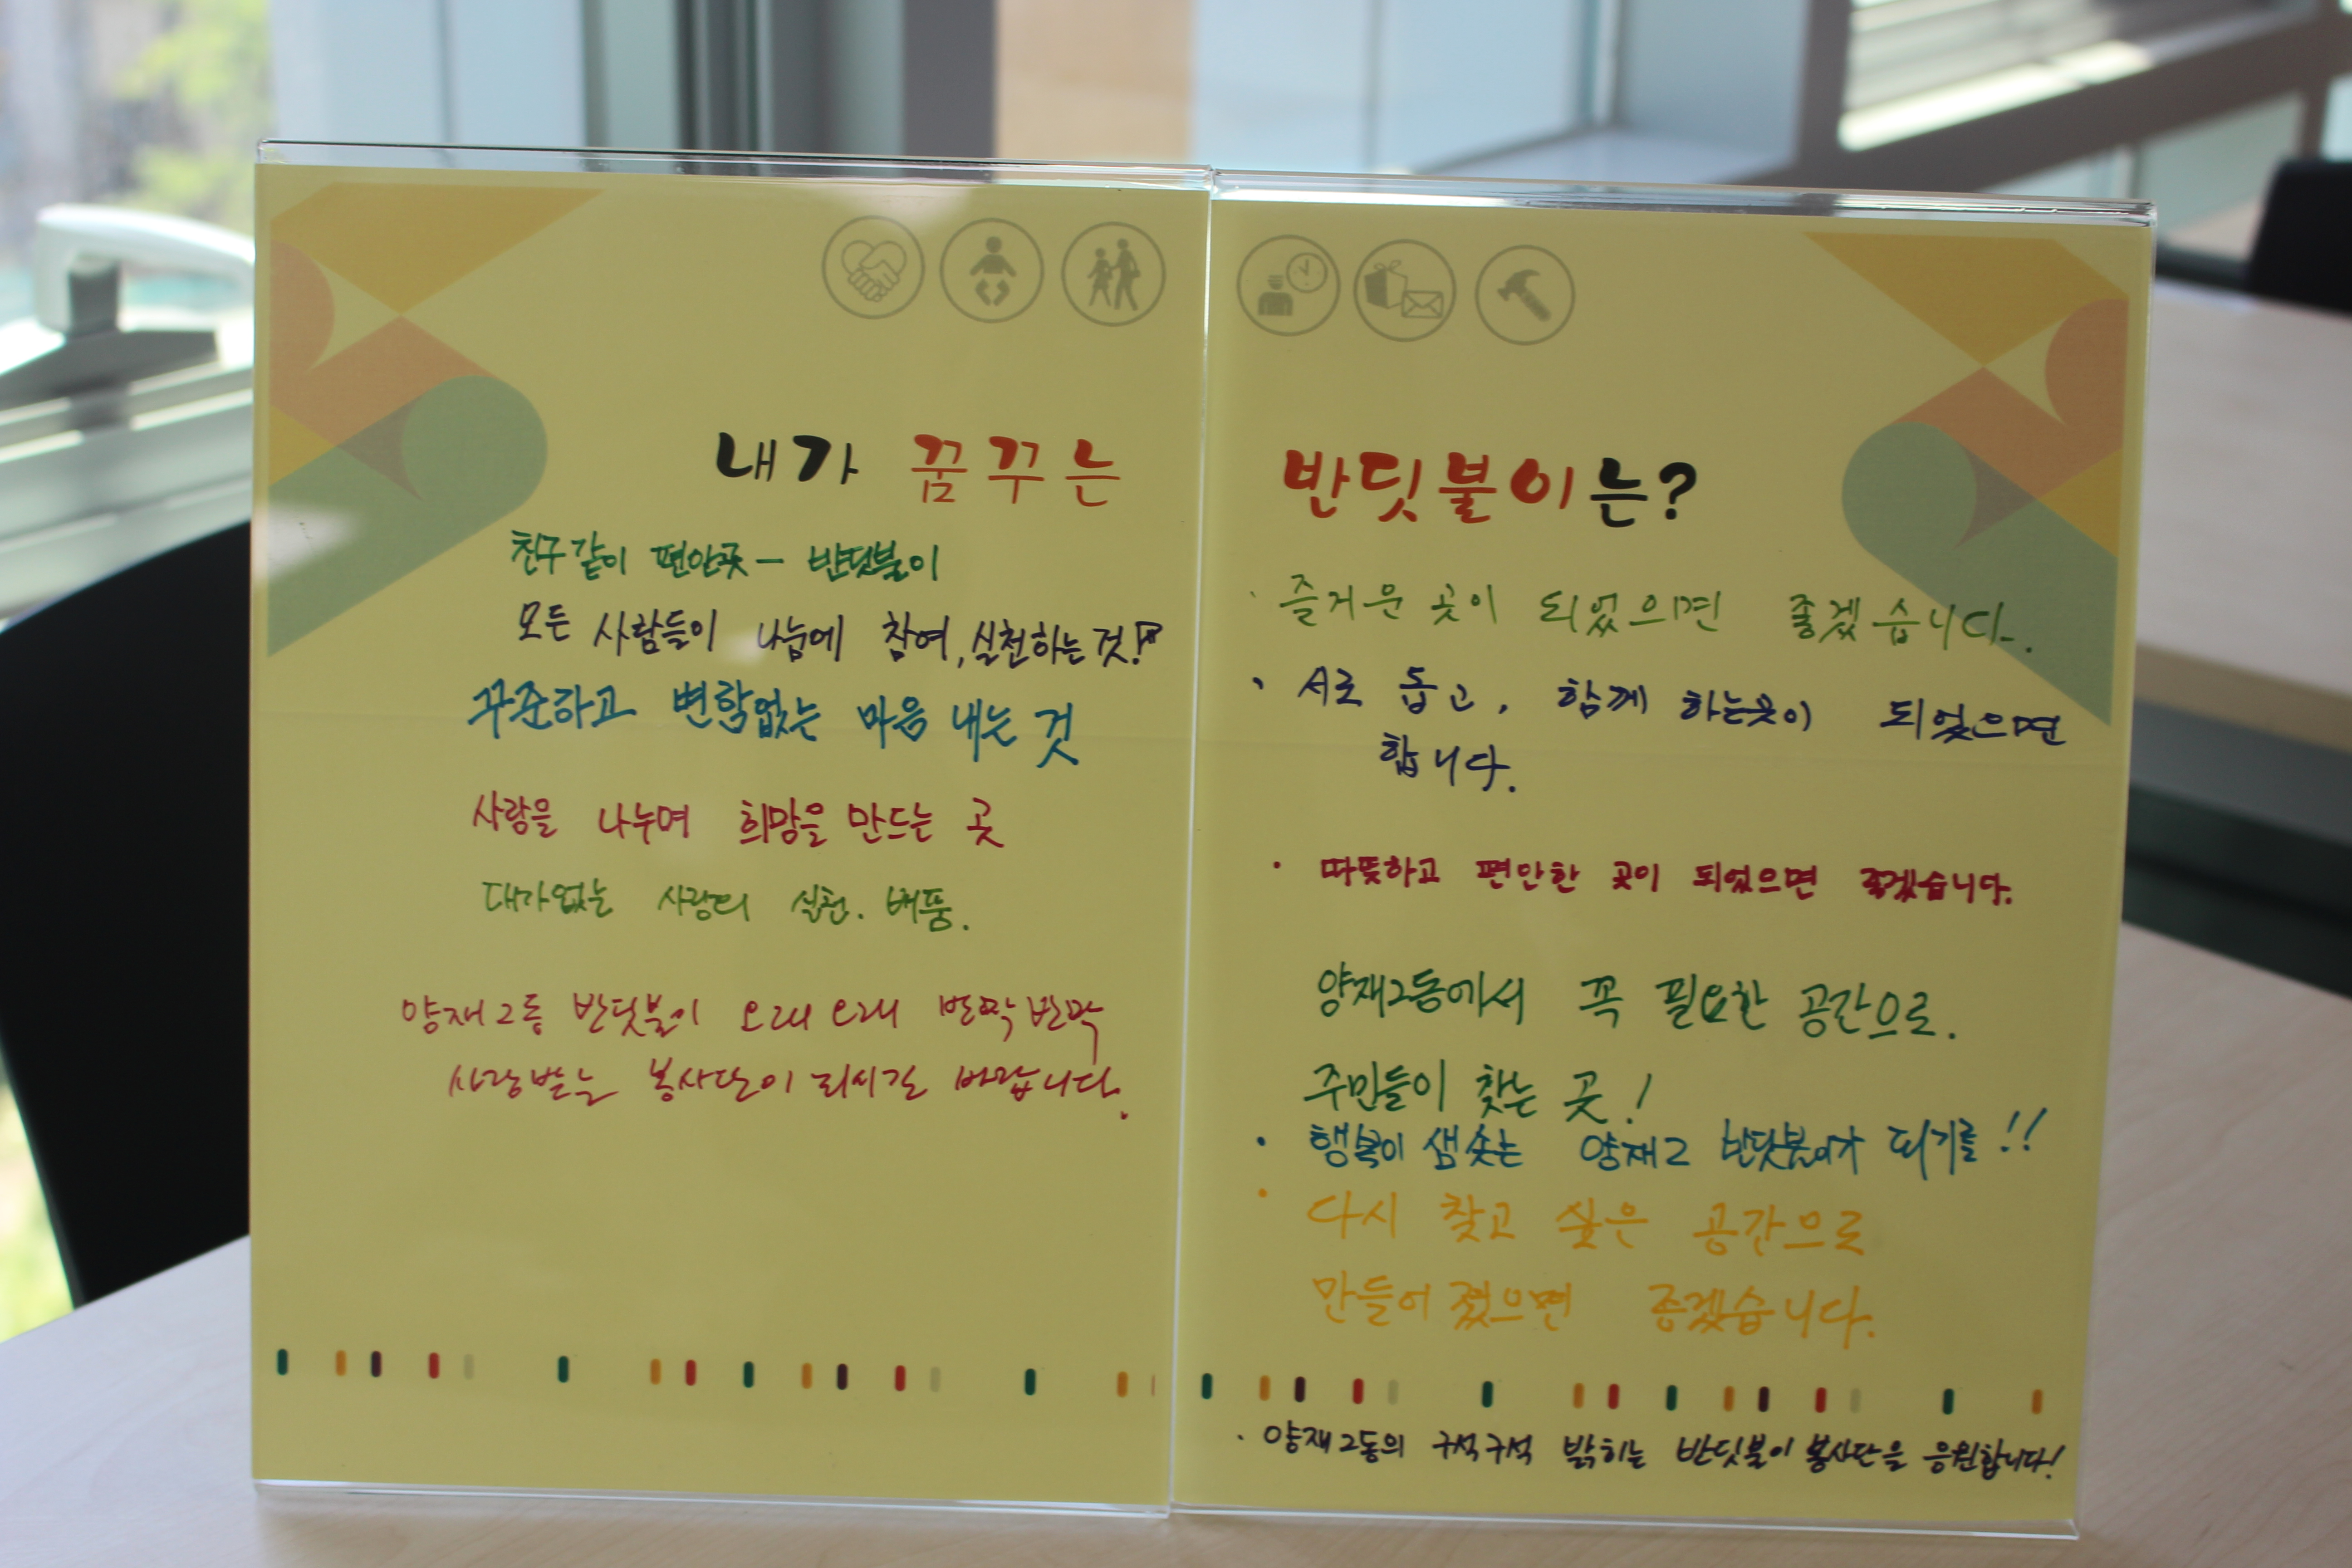 내가 꿈꾸는
친구같이 편안곳 - 반딧불이
모든 사람들이 나눔에 참여, 실천하는 것!
꾸준하고 변함없는 마음 내는 것
사랑을 나누며 희망을 만드는 곳
대가없는 사랑의 실천. 베품.
양재2동 반딧불이 오래오래 반짝반짝
사랑받는 봉사단이 되시길 바랍니다.
반딧불이는?
· 즐거운 곳이 되었으면 좋겠습니다.
· 서로 돕고, 함께 하는곳이 되었으면
합니다.
· 따뜻하고 편안한 곳이 되었으면 좋겠습니다.
양재2동에서 꼭 필요한 공간으로.
주민들이 찾는 곳!
· 행복이 샘솟는 양재2 반딧불이가 되기를!!
· 다시 찾고 싶은 공간으로
만들어졌으면 좋겠습니다.
· 양재2동의 구석구석 밝히는 반딧불이 봉사단을 응원합니다!